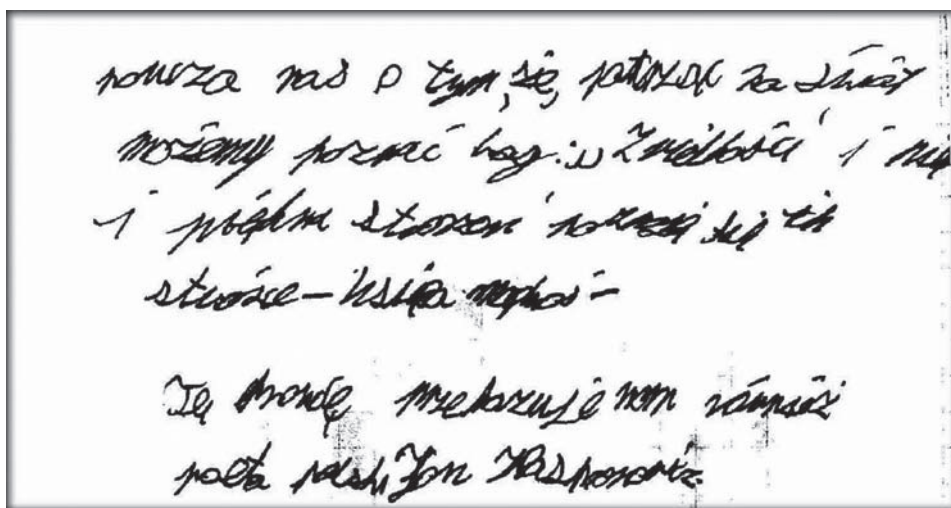 poucza nas o tym, że, patrząc na świat
możemy poznać bog: „Z wielkości i
i piękna stworzeń poznaje się ich
stwórcę –
Tę prawdę przekazuje nam również
poeta polski Jan Kasprowicz.